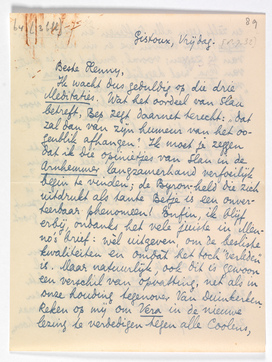 89
Gistoux, Vrijdag.
Beste Henny,
Ik wacht dus geduldig op die drie
Meditaties. Wat het oordeel van Slau
betreft, Bep zegt daarnet terecht: "dat
zal dan van zijn humeur van het oo-
genblik afhangen". Ik moet je zeggen
dat ik die opinietjes van Slau in de
Arnhemmer langzamerhand verfoeilijk
begin te vinden; de Byron-held die zich
uitdrukt als tante Betje is een onver-
teerbaar phenomeen! Enfin, ik blijf
erbij, ondanks het vele juiste in Men-
no's brief: wèl uitgeven, om de besliste
kwaliteiten en omdat het toch verleden
is. Maar natuurlijk, ook dit is gewoon
een verschil van opvatting, net als in
onze houding tegenover Van Duinkerken.
Reken op mij om Vera in de nieuwe
lezing te verdedigen tegen alle Coolens,